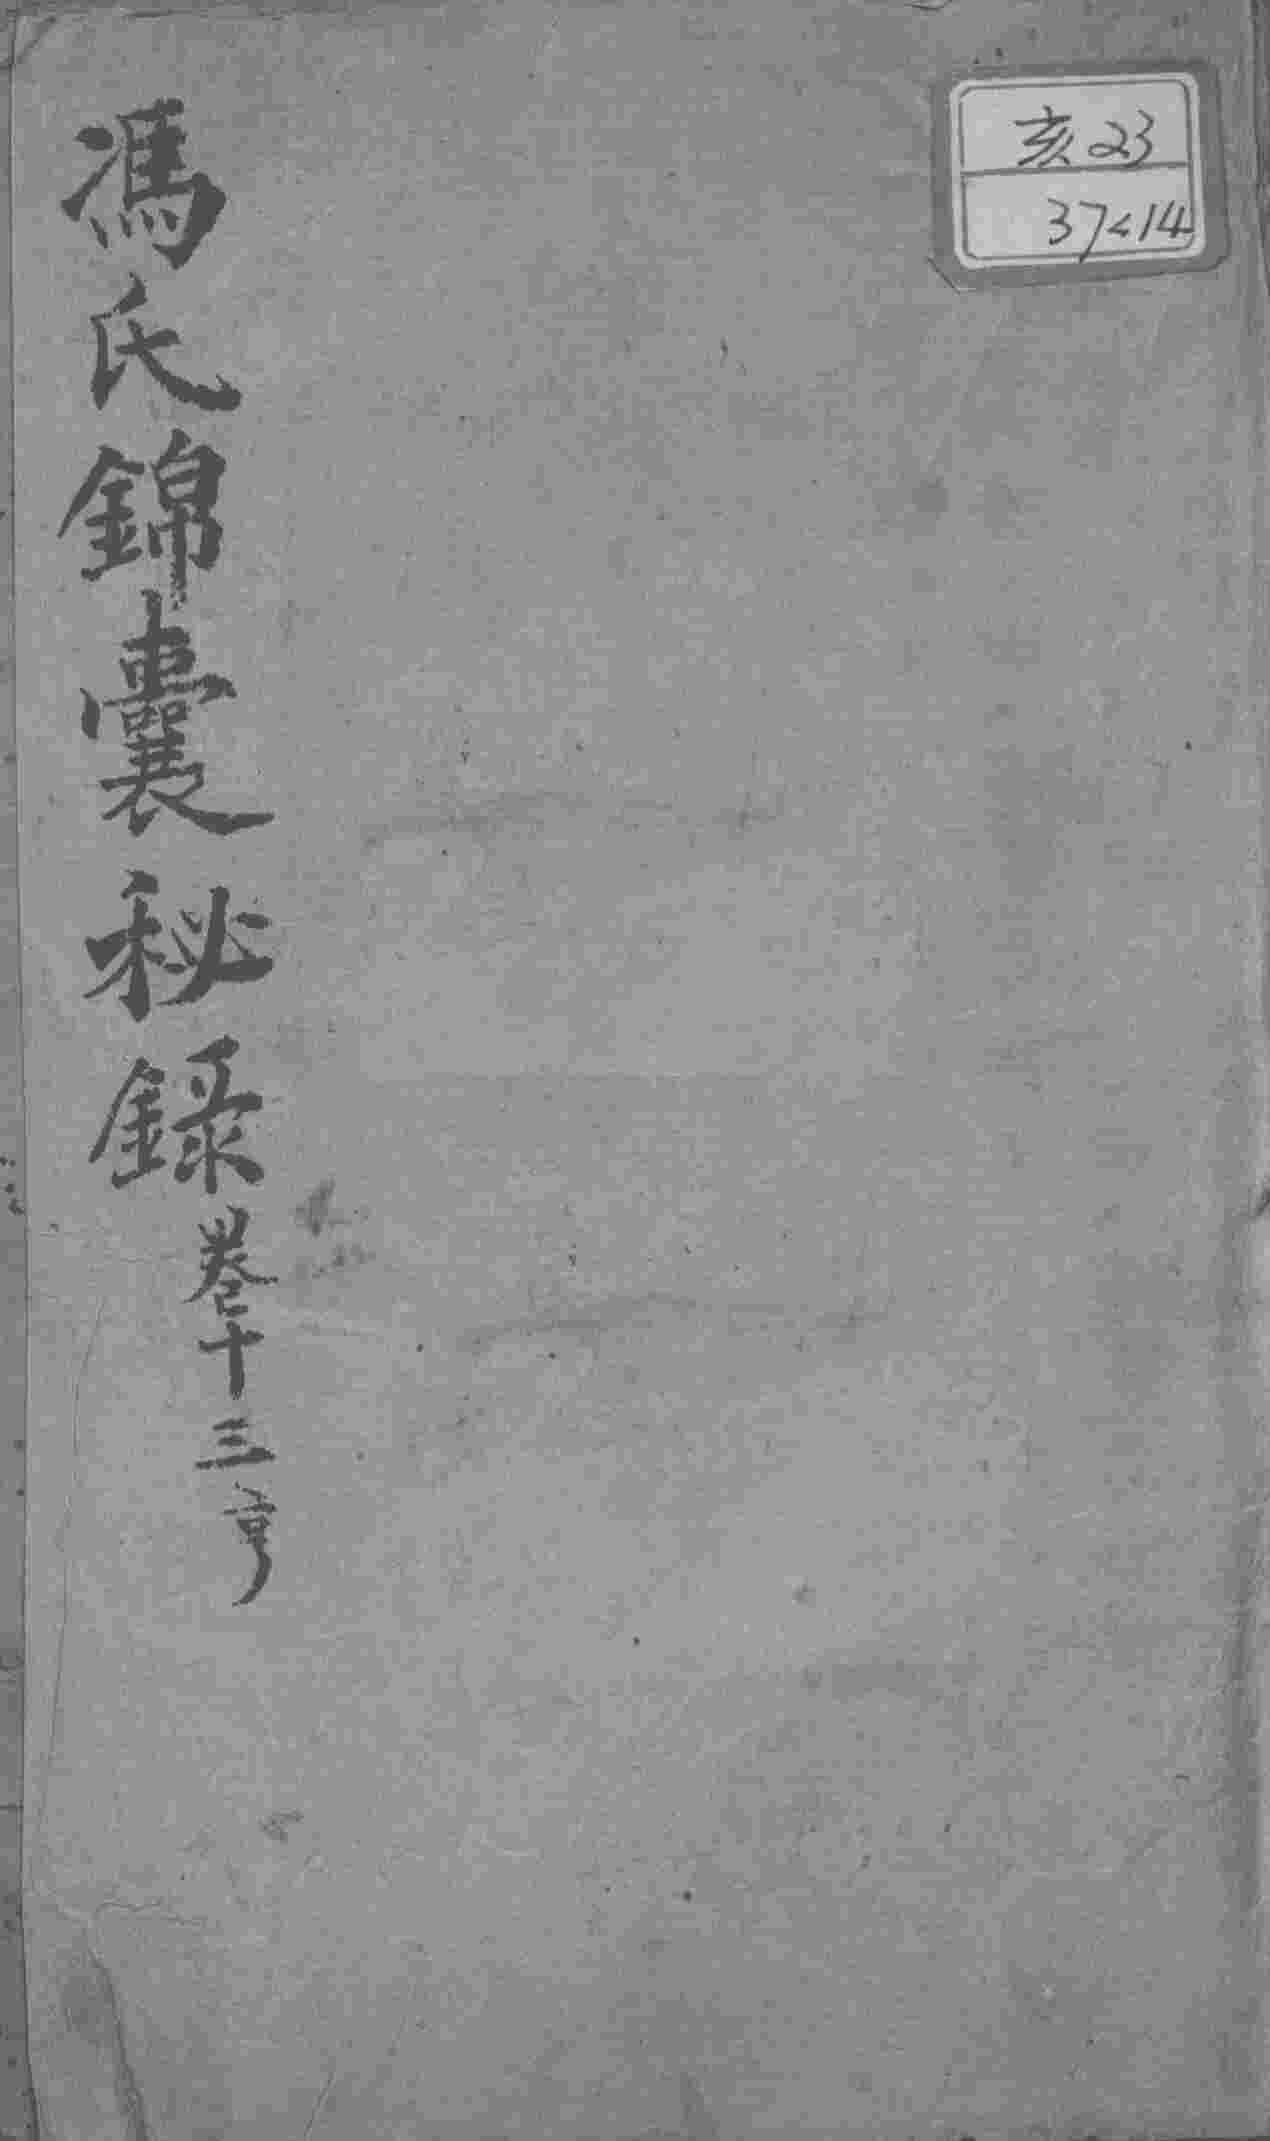 亥23
37<14
馮氏錦囊秘錄卷十三亨